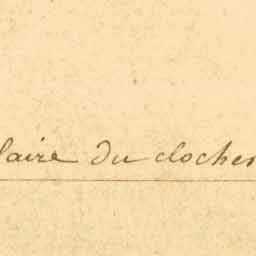 laire du clocher